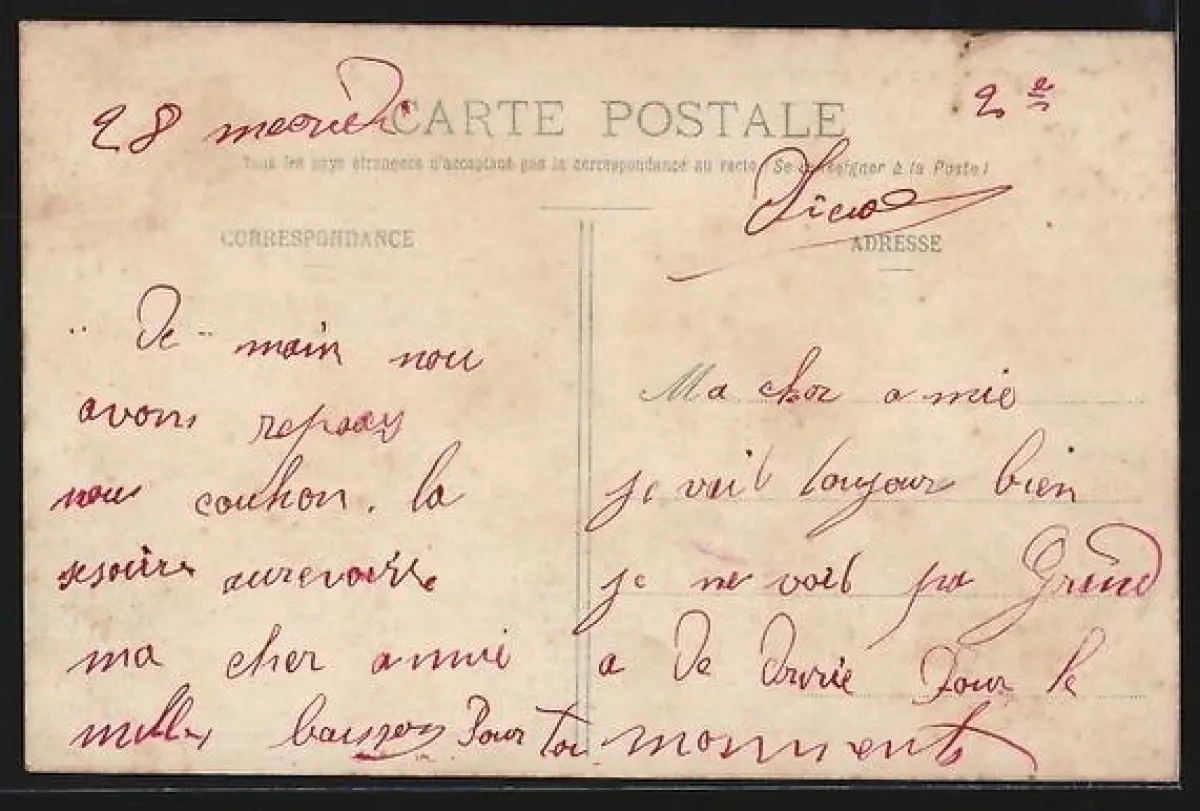 28
CARTE POSTALE
2e
Tous les pays étrangers n'acceptant pas la correspondance au recto. Se renseigner à la Poste!
CORRESPONDANCE
ADRESSE
De main nou
avons repos
nous couhon. la
ma cher amie
mille Pour toi
Ma cher amie
je vait toujour bien
je ne voit pa Grend
a De Pour le
moment